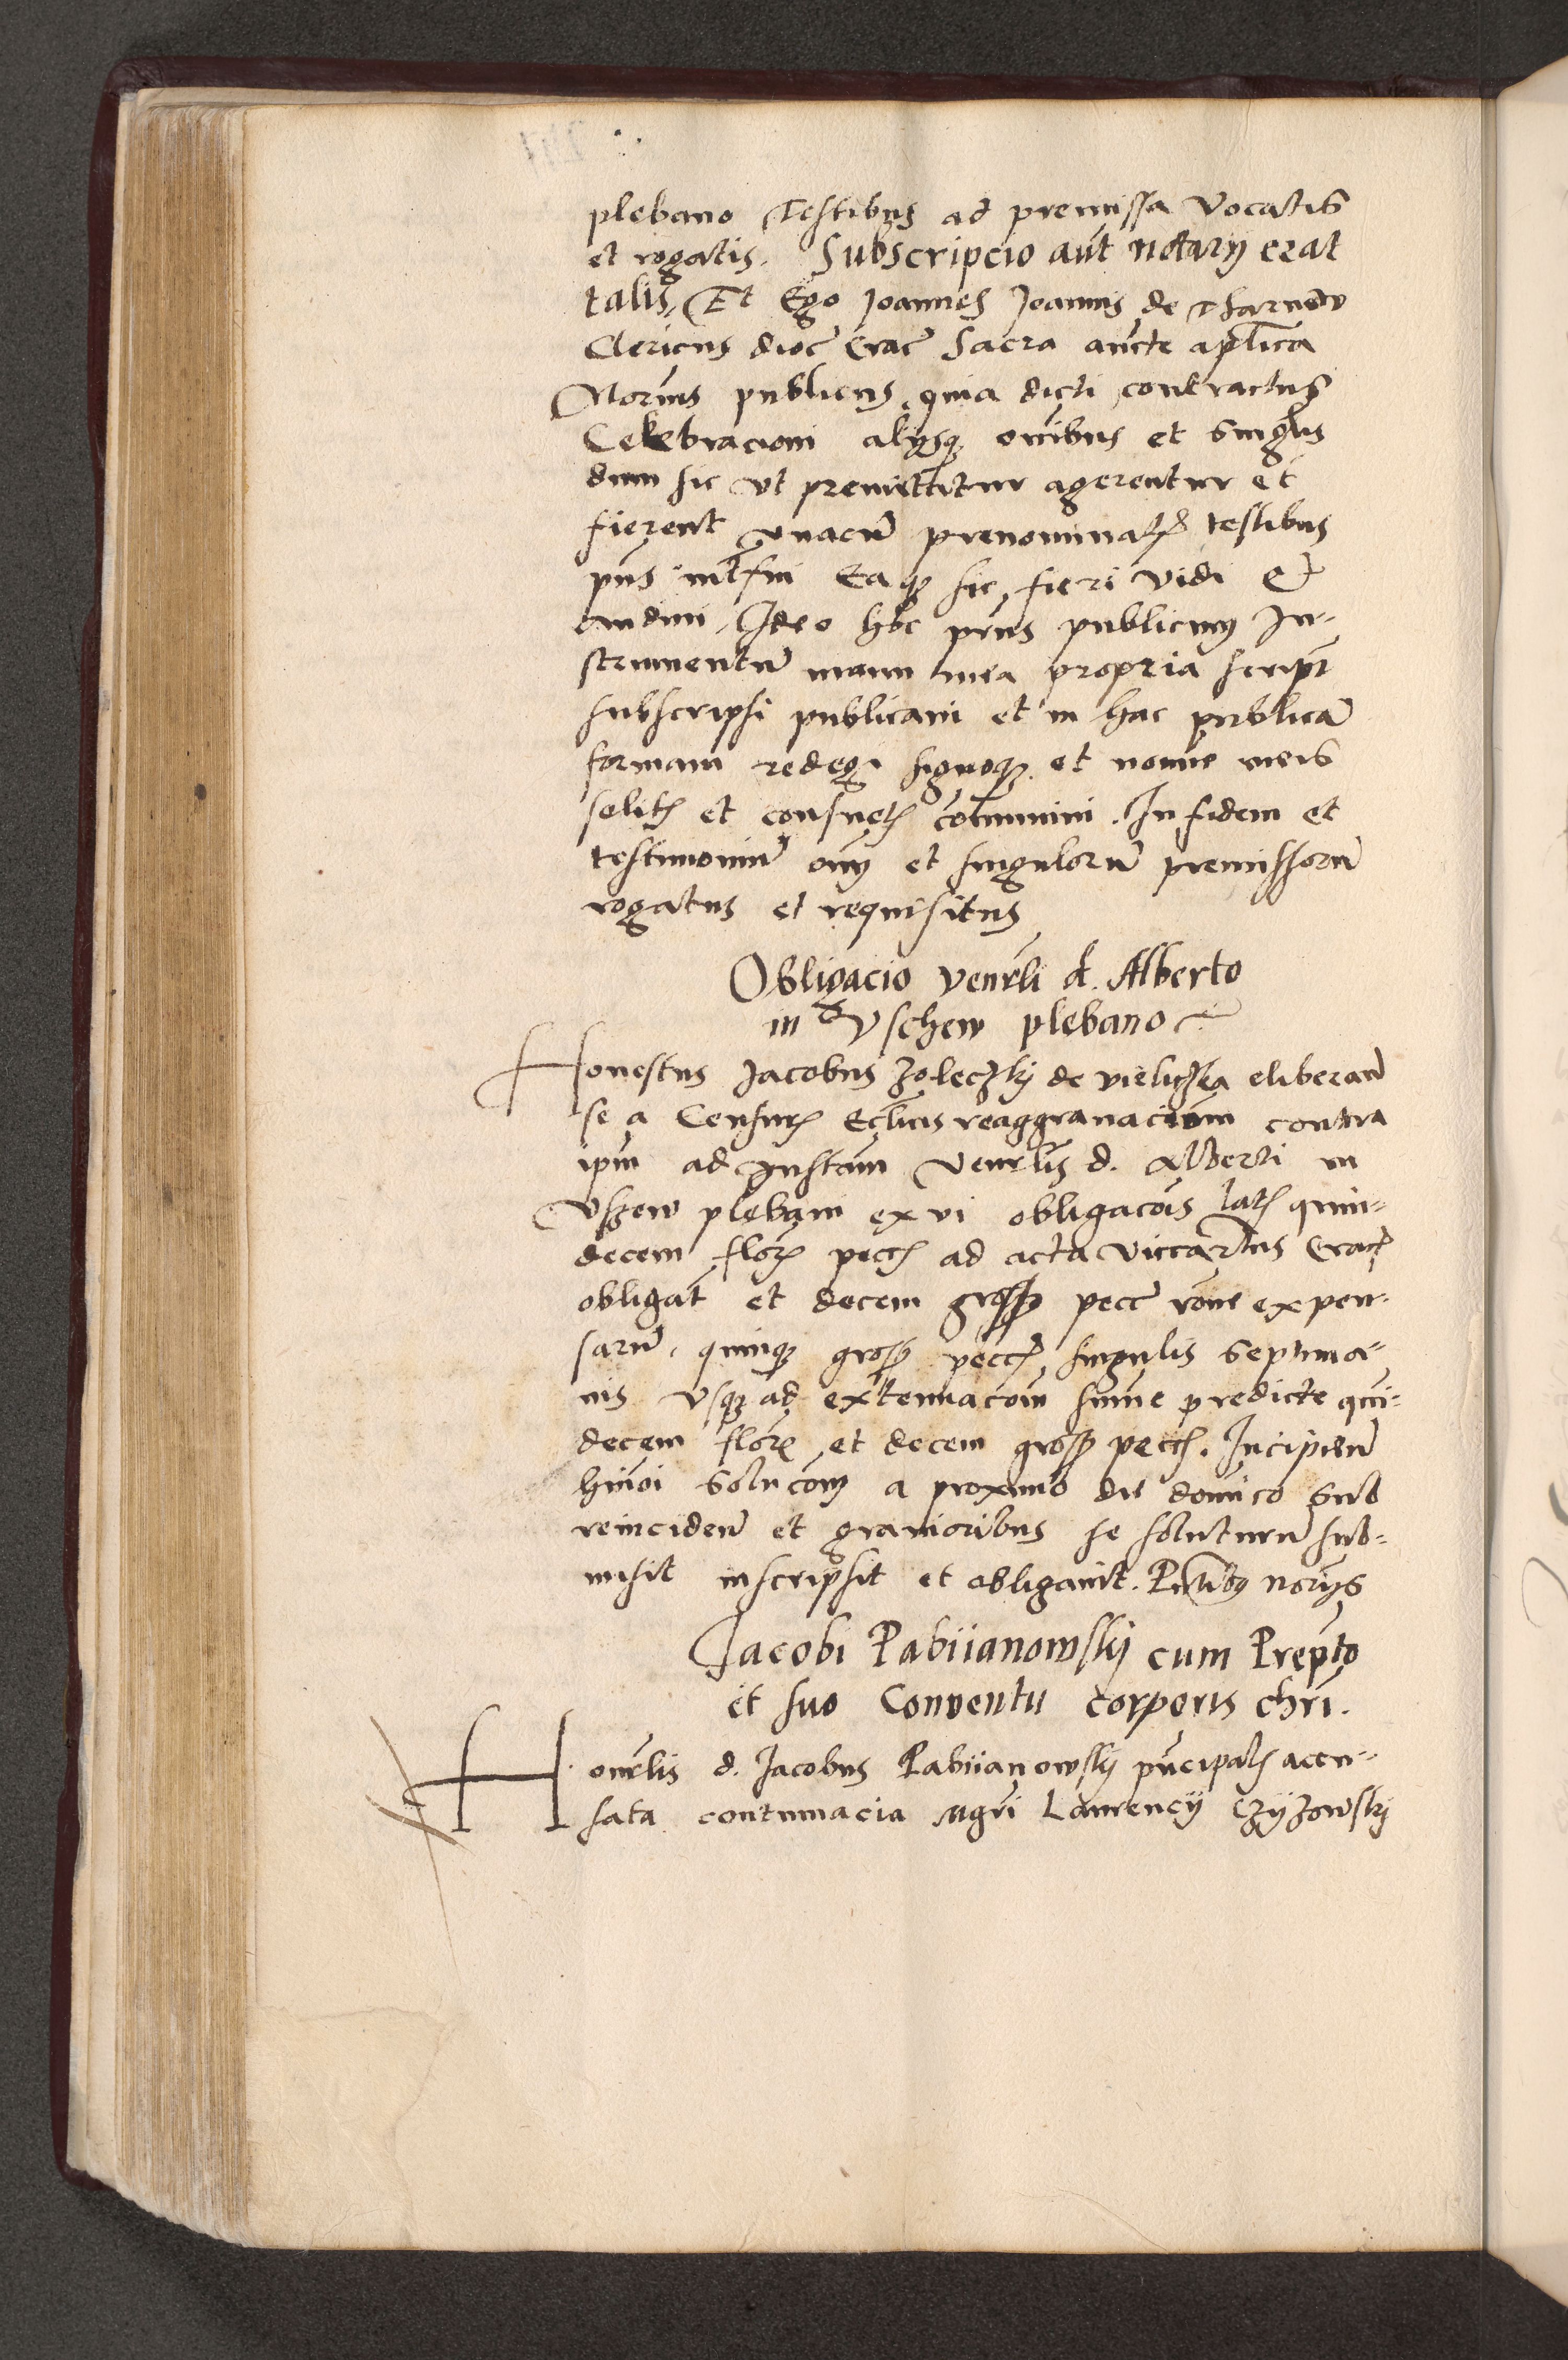 plebano Testibus ad premissa vocatis
et rogatis. Subscripcio aut notarij erat
talis, Et Ego Joannes Joannis de Tharnow
Clericus dioc Crac Sacra aucte aplica
Norius publicus quia dicti contractus
Celebracioni alijsq omibus et singlis
dum sic vt premittitur agerentur et
fierent vnacu prenominat testibus
pns intfui Eaq sic fieri vidi Et
audiui, Ideo hoc pns publicum In-
strumentu manu mea propria script
subscripsi publicaui et in hac publica
formam redegi signoq et nomie meis
solit et consuet comuniui. In fidem et
testimoniu oim et singuloru premissoru
rogatus et requisitus
Obligacio venrli d. Alberto
in Vschew plebano
Honestus Jacobus Zoleczky de vieliczka eliberan
se a Censur Ecclicis reaggrauaciom contra
ipm ad Instam Venrlis d. Alberti in
Vszew plebani ex vi obligacois lat quin-
decem flor pecc ad acta viccariatus Crac
obligat et decem gross pecc rone expen-
saru, quinq gross pecc singulis septima-
nis vsq ad extenuacom sume predicte qui-
decem flor et decem gross pecc. Incipien
hmoi solucom a proximo die domico sub
reinciden et grauioribus se soluturu sub-
misit inscripsit et obligauit. Pntibus norijs
Jacobi Pabiianowskj cum Prepto
et suo Conventu corporis chri.
Honrlis d. Jacobus Pabiianowskj pncipal accu-
sata contumacia mgri Laurencij Czyzowskj